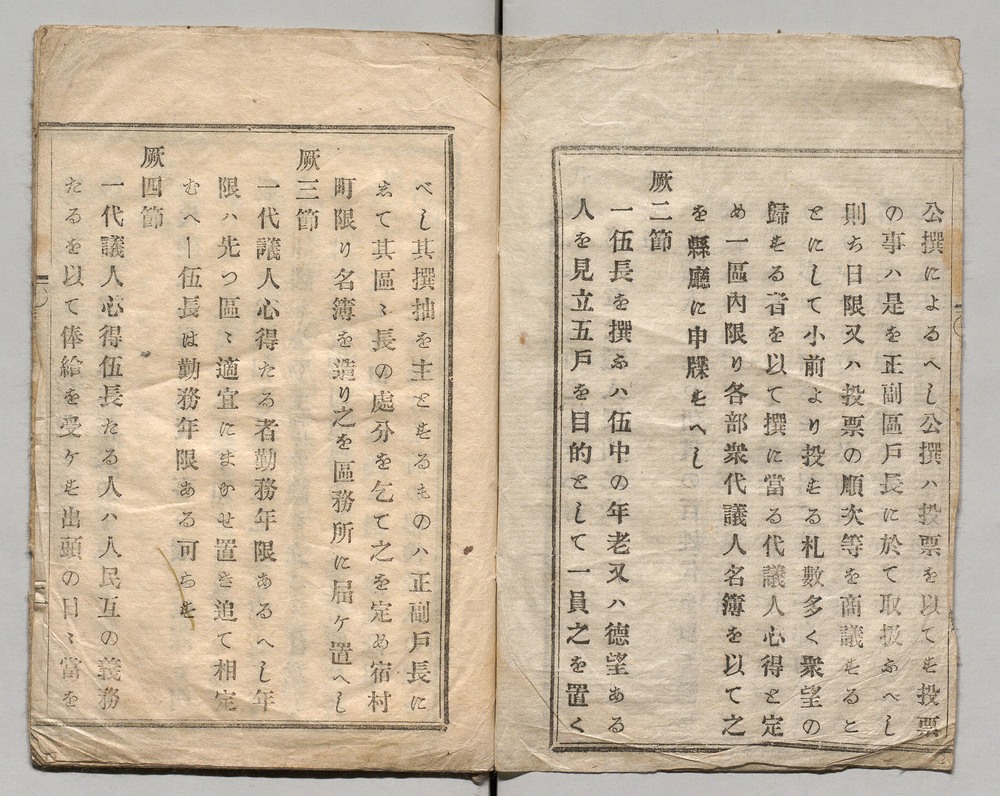 公撰によるへし公撰ハ投票を以てを投票
の事ハ是を正副區戸長に於て取扱ふべし
則ち日限又ハ投票の順次等を商議をると
とにして小前より投をる札數多く衆望の
歸をる者を以て撰に當る代議人心得と定
め一區內限り各部衆代議人名簿を以て之
を縣廳に申牒をへし
厥二節
一伍長を撰ふハ伍中の年老又ハ德望ある
人を見立五戸を目的として一員之を置く
べし其撰抽を主とをるものハ正副戸長に
して其區〻長の處分を乞て之を定め宿村
町限り名簿を造り之を區務所に屆ケ置へし
厥三節
一代議人心得たる者勤務年限あるへし年
限ハ先つ區〻適宜にまかせ置き追て相定
むへー伍長は勤務年限ある可らを
厥四節
一代議人心得伍長たる人ハ人民互の義務
たるを以て俸給を受ケを出頭の日〻當を